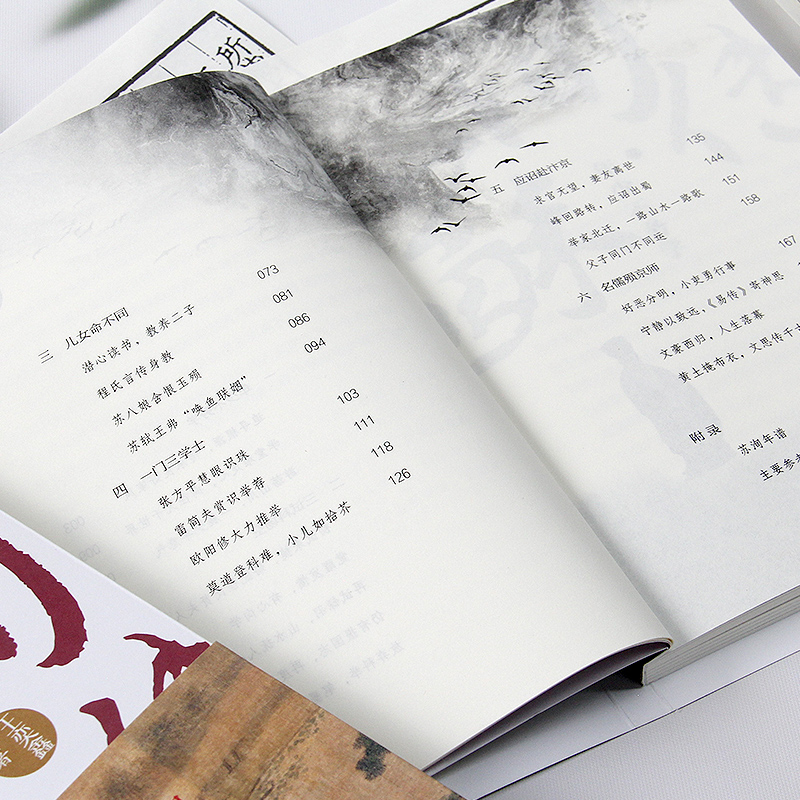 三 儿女命不同
潜心读书，教养二子 073
程氏言传身教 081
苏八娘含恨玉殒 086
苏轼王弗“唤鱼联姻” 094
四 一门三学士
张方平慧眼识珠 103
雷简夫赏识举荐 111
欧阳修大力推举 118
莫道登科难，小儿如拾芥 126
五 应诏赴汴京
求官无望，妻友离世 135
峰回路转，应诏出蜀 144
举家北迁，一路山水一路歌 151
父子同门不同运 158
六 名儒殒京师
好恶分明，小吏勇行事 167
宁静以致远，《易传》寄神思
文豪西归，人生落幕
黄土掩布衣，文思传千
附录
苏洵年谱
主要参
所